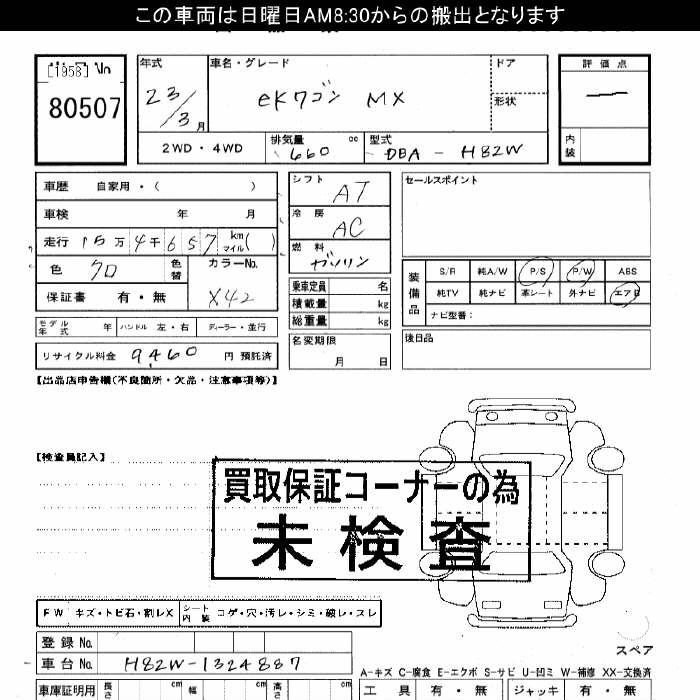 この車両は日曜日AM8:30からの搬出となります
[1958]
80507
年式
23/3月
車名・グレード
eKワゴン MX
ドア
形状
評価点
内装
2WD・4WD
排気量
660
cc
型式
DBA - H82W
車歴 自家用・( )
車検 年 月
走行 15万4千657 km マイル( )
色 クロ 色替
カラーNo.
X42
保証書 有・無
モデル年式 年 ハンドル 左・右 ディーラー・並行
リサイクル料金 9,460 円 預託済
シフト AT
冷房 AC
燃料 ガソリン
乗車定員 名
積載量 kg
総重量 kg
名変期限
月 日
セールスポイント
装備品
S/R 純A/W P/S P/W ABS
純TV 純ナビ 革シート 外ナビ エアB
ナビ型番:
後日品
【出品店申告欄(不良箇所・欠品・注意事項等)】
【検査員記入】
買取保証コーナーの為
未検査
FW キズ・トビ石・割レX
シート内装 コゲ・穴・汚レ・シミ・破レ・スレ
登録No.
車台No. H82W-1324887
車庫証明用 長さ cm 幅 cm 高さ cm
スペア
A-キズ C-腐食 E-エクボ S-サビ U-凹ミ W-補修 XX-交換済
工具 有・無 ジャッキ 有・無